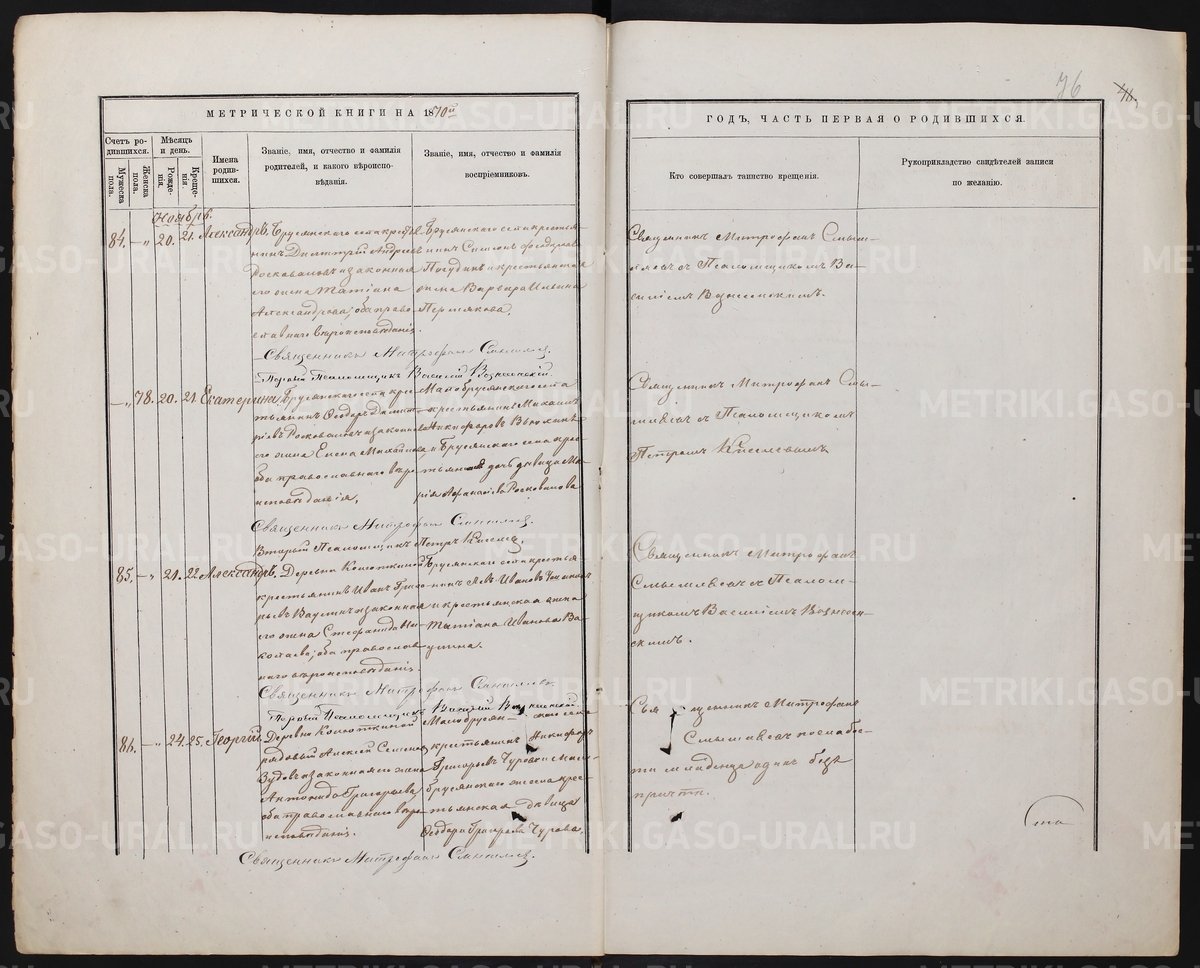 МЕТРИЧЕСКОЙ КНИГИ НА 1870й
Счетъ родившихся.
Мѣсяцъ и день.
Имена родившихся.
Званіе, имя, отчество и фамилія родителей, и какого вѣроисповѣданія.
Званіе, имя, отчество и фамилія воспріемниковъ.
Мужеска пола.
Женска пола.
Рожденія.
Крещенія.
Ноябрь.
84. — „ 20. 21. Александръ.
Брусянскаго села крестья-
нинъ Димитрій Андреевъ
Росковаловъ и законная
его жена Татіана
Александрова, оба право-
славнаго вѣроисповѣданія.
Брусянскаго села крестья-
нинъ Симеонъ
и крестьянская
жена Варвара Ильина
Пермякова.
Священникъ Митрофанъ Смышляев.
Первый Псаломщикъ Василій Вознесенскій.
— „ 78. 20. 21. Екатерина.
Брусянскаго села кре-
стьянинъ Ѳеодоръ Дими-
тріевъ Росковаловъ и законная
его жена Елена Михайлова,
оба православнаго вѣро-
исповѣданія.
Малобрусянскаго села
крестьянинъ Михаилъ
Никифоровъ
и Брусянскаго села кре-
стьянская дочь дѣвица Ма-
рія Афанасіева Росковалова
Священникъ Митрофан Смышляев.
Вторый Псаломщикъ Петръ Киселев.
85. — „ 21. 22. Александръ.
Деревни Колюткиной
крестьянинъ Иванъ Григо-
рьевъ Ваулинъ и законная
его жена Стефанида Ни-
колаева, оба православ-
наго вѣроисповѣданія.
Брусянскаго села крестья-
нинъ Яковъ Ивановъ
и крестьянская жена
Татіана Иванова Ва-
улина.
Священникъ Митрофан Смышляевъ
Первый Псаломщикъ Василій Вознесенскій
86. — „ 24. 25. Георгій.
Деревни Колюткиной
рядовый Алексѣй Семеновъ
Зудовъ и законная его жена
Антонида Григорьева,
оба православнаго вѣро-
исповѣданія.
Малобрусян- скаго села
крестьянинъ Никифоръ
Григорьевъ Чуровъ и Мало-
брусянскаго же села крес-
тьянская дѣвица
Ѳеодора Григорьева Чурова.
Священникъ Митрофан Смышляев.
76
46.
ГОДЪ, ЧАСТЬ ПЕРВАЯ О РОДИВШИХСЯ.
Кто совершалъ таинство крещенія.
Рукоприкладство свидѣтелей записи по желанію.
Священникъ Митрофанъ Смыш-
ляевъ съ Псаломщикомъ Ва-
силіемъ Вознесенскимъ.
Священникъ Митрофанъ Смы-
шляевъ съ Псаломщикомъ
Петромъ Киселевымъ
Священникъ Митрофанъ
Смышляевъ съ Псалом-
щикомъ Василіемъ Вознесен-
скимъ.
Священникъ Митрофанъ
Смышляевъ по слабос-
ти младенца одинъ безъ
причта.
METRIKI.GASO-URAL.RU